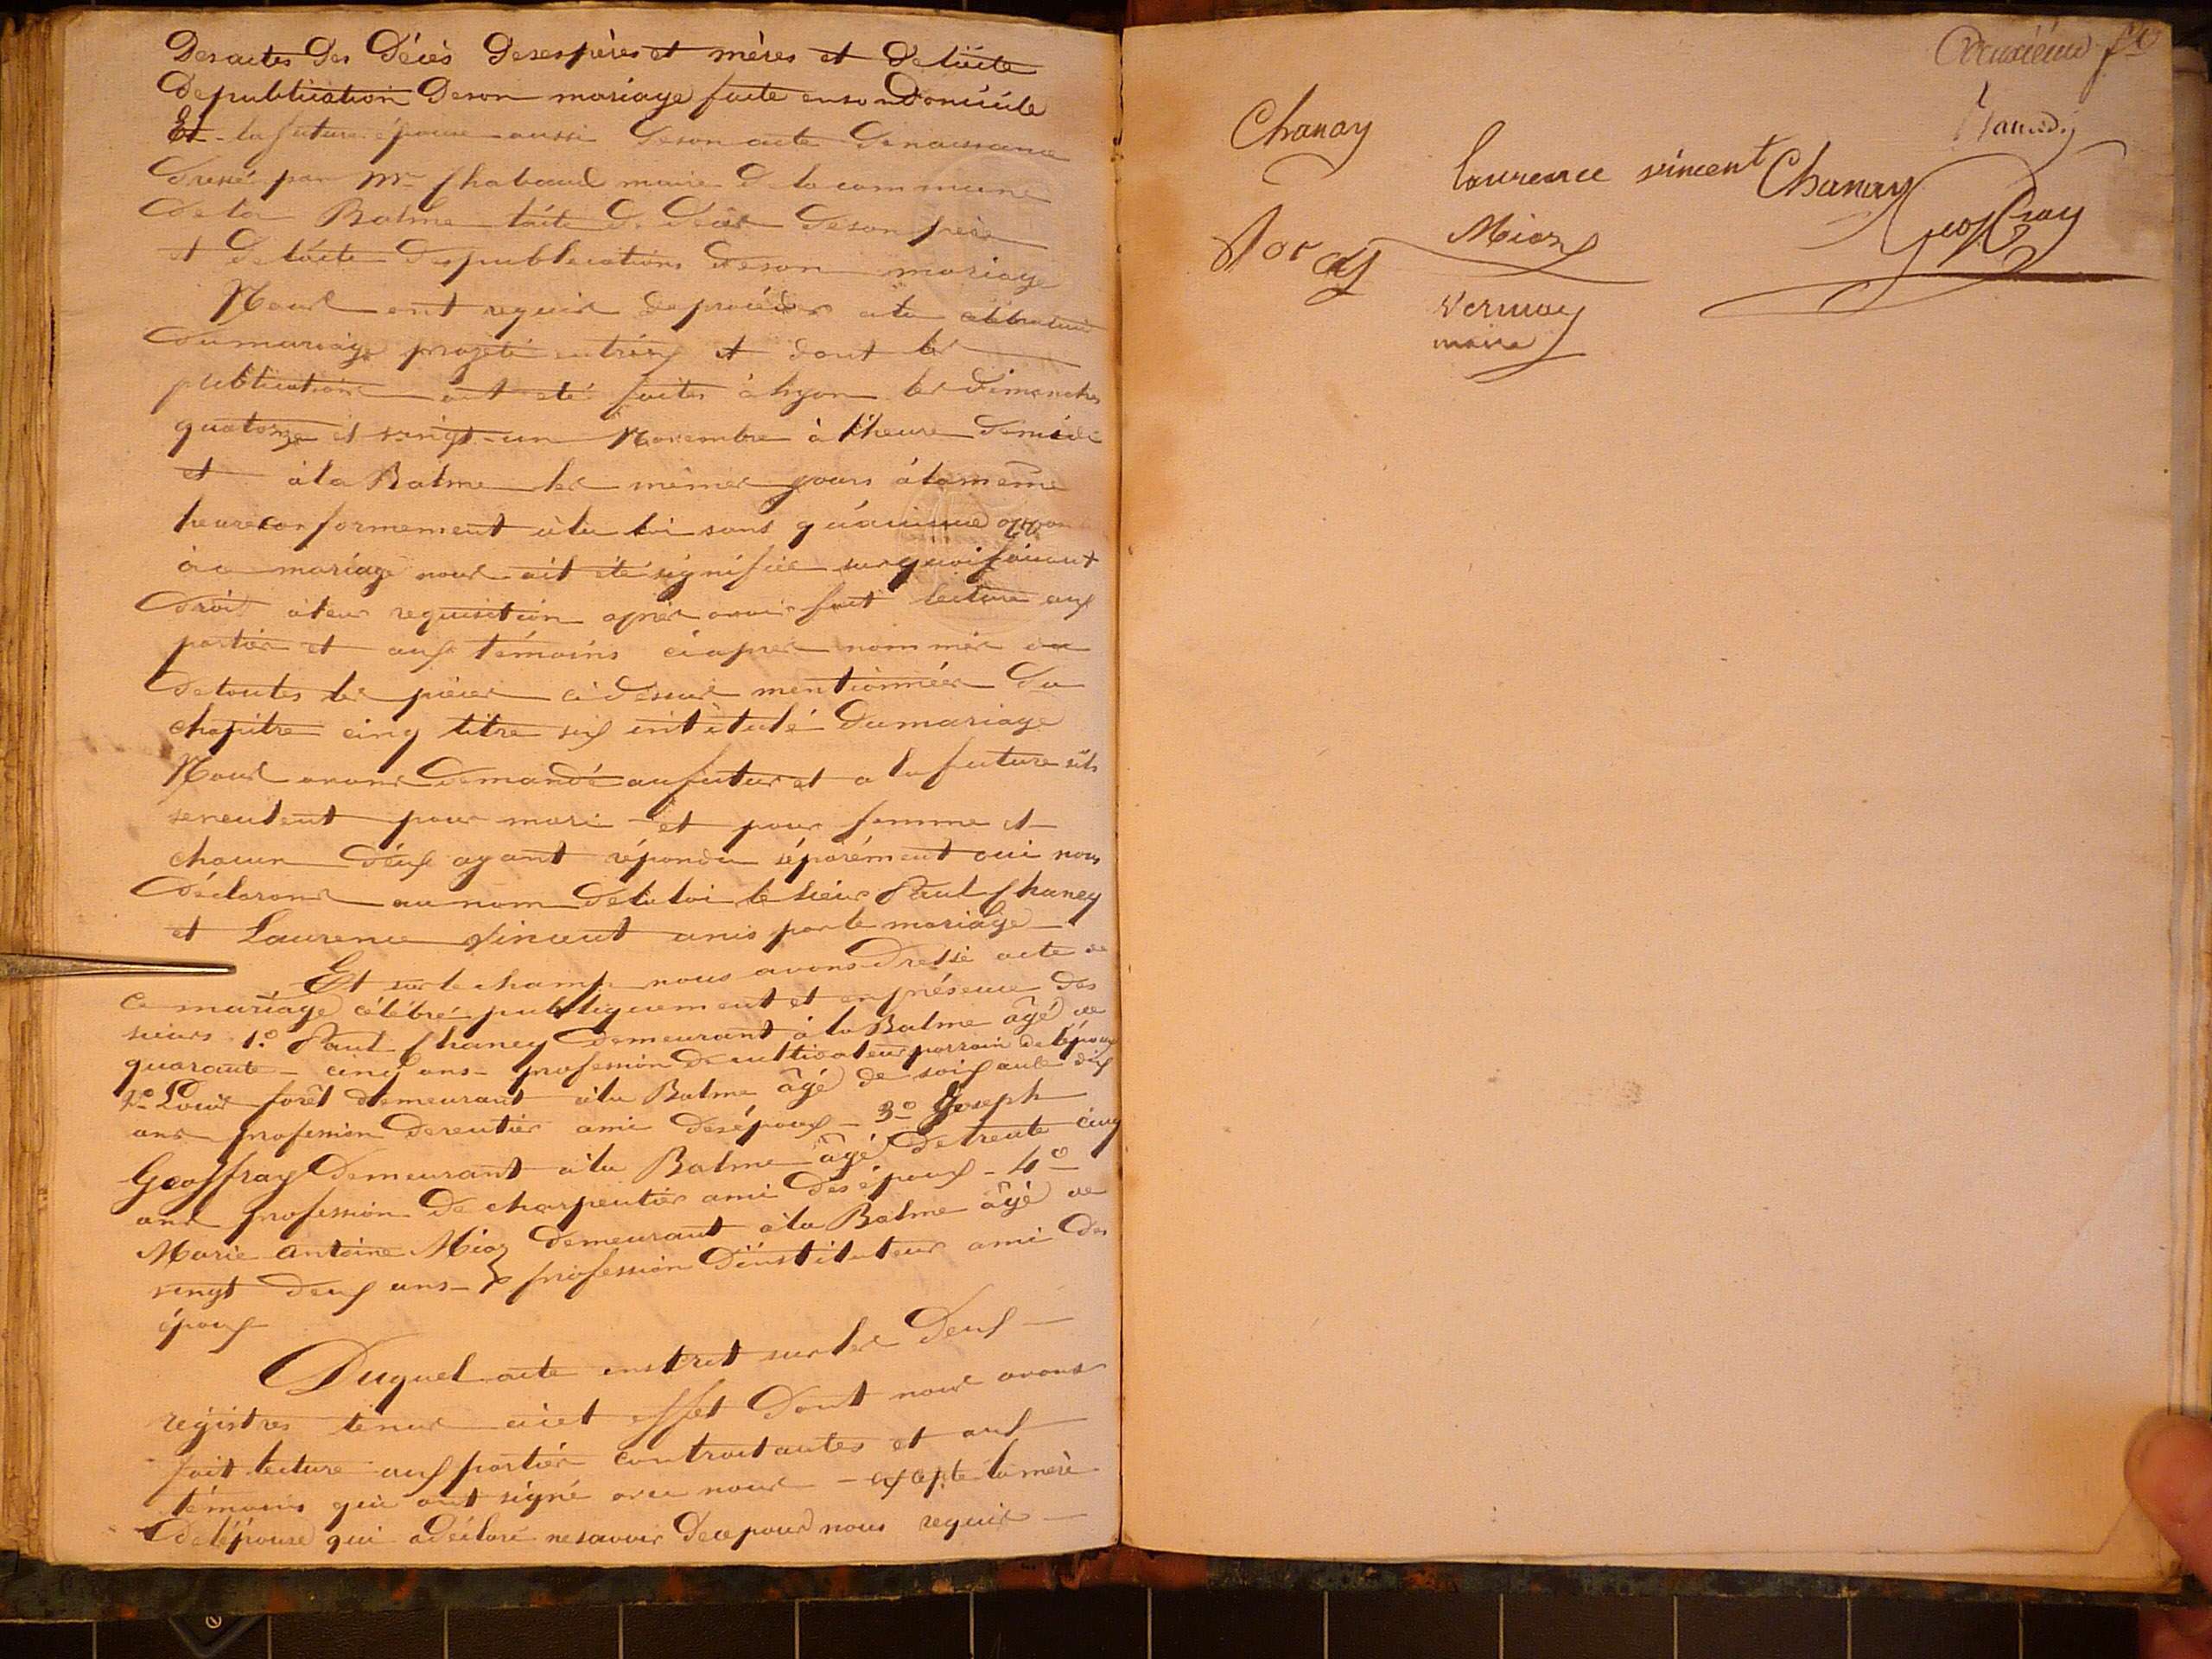 Des actes des Décès de ses pères et mères et de l'acte
de publication de son mariage faite en son Domicile
Et la future épouse aussi de son acte de naissance
dressé par Mr Chabaud maire de la commune
de la Balme l'acte de décès de son père
et de l'acte des publications de son mariage
Nous ont requis de procéder à la célébration
du mariage projeté entr'eux et dont les
publications ont été faites à Lyon les dimanches
quatorze et vingt-un Novembre à l'heure de midi
et à la Balme les mêmes jours à la même
heure conformement à la loi sans qu'aucune
à ce mariage nous ait été signifiée sur quoi faisant
droit à leur requisition après avoir fait lecture aux
parties et aux témoins ci après nommés
de toutes les pièces ci dessus mentionnées du
chapitre cinq titre six intitulé du mariage
Nous avons demandé au futur et a la future s'ils
se veulent pour mari et pour femme et
chacun d'eux ayant répondu séparément oui nous
déclarons au nom de la loi le sieur Paul Chaney
et Laurence Vincent unis par le mariage
Et sur le champ nous avons dressé acte de
ce mariage célébré publiquement et en présence des
sieurs 1.o Paul Chaney demeurant à la Balme âgé de
quarante-cinq ans profession de cultivateur parrain de l'époux
2.o Louis forêt demeurant à la Balme âgé de soixante dix
ans profession de rentier ami des époux - 3o Joseph
Geoffray demeurant à la Balme âgé de trente cinq
ans profession de charpentier ami des époux - 4o
Marie Antoine Mioz demeurant à la Balme âgé de
vingt deux ans profession d'instituteur ami des
époux
Duquel acte inscrit sur les Deux
régistres tenus à cet effet dont nous avons
fait lecture aux parties contractantes et aux
témoins qui ont signé avec nous - excepté la mère
de l'épouse qui a déclaré ne savoir de ce par nous requis
Deuxième fet
Chanay
laurence vincent Chanay
Mioz
Geoffray
foray
Vernay
maire